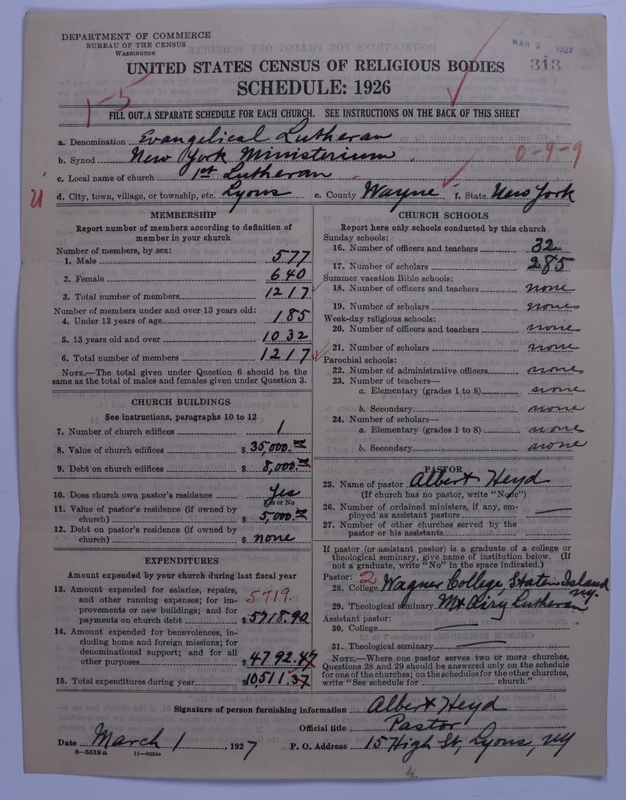 DEPARTMENT OF COMMERCE
BUREAU OF THE CENSUS
WASHINGTON
MAR 3 1927
313
UNITED STATES CENSUS OF RELIGIOUS BODIES
SCHEDULE: 1926
1-5
FILL OUT A SEPARATE SCHEDULE FOR EACH CHURCH. SEE INSTRUCTIONS ON THE BACK OF THIS SHEET
a. Denomination Evangelical Lutheran
b. Synod New York Ministerium
0-9-9
c. Local name of church 1st Lutheran
d. City, town, village, or township, etc. Lyons e. County Wayne f. State New York
MEMBERSHIP
Report number of members according to definition of
member in your church
Number of members, by sex:
1. Male 577
2. Female 640
3. Total number of members 1217
Number of members under and over 13 years old:
4. Under 13 years of age 185
5. 13 years old and over 1032
6. Total number of members 1217
NOTE.—The total given under Question 6 should be the
same as the total of males and females given under Question 3.
CHURCH BUILDINGS
See instructions, paragraphs 10 to 12
7. Number of church edifices 1
8. Value of church edifices $ 35,000.
9. Debt on church edifices $ 8,000.
10. Does church own pastor's residence Yes
Yes or No
11. Value of pastor's residence (if owned by
church) $ 5,000.
12. Debt on pastor's residence (if owned by
church) $ none
EXPENDITURES
Amount expended by your church during last fiscal year
13. Amount expended for salaries, repairs,
and other running expenses; for im-
provements or new buildings; and for
payments on church debt $ 5718.90
5719.
14. Amount expended for benevolences, in-
cluding home and foreign missions; for
denominational support; and for all
other purposes $ 4792.47
15. Total expenditures during year $ 10,511.37
CHURCH SCHOOLS
Report here only schools conducted by this church
Sunday schools:
16. Number of officers and teachers 32
17. Number of scholars 285
Summer vacation Bible schools:
18. Number of officers and teachers none
19. Number of scholars none
Week-day religious schools:
20. Number of officers and teachers none
21. Number of scholars none
Parochial schools:
22. Number of administrative officers none
23. Number of teachers—
a. Elementary (grades 1 to 8) none
b. Secondary none
24. Number of scholars—
a. Elementary (grades 1 to 8) none
b. Secondary none
PASTOR
25. Name of pastor Albert Heyd
(If church has no pastor, write "None")
26. Number of ordained ministers, if any, em-
ployed as assistant pastors —
27. Number of other churches served by the
pastor or his assistants
If pastor (or assistant pastor) is a graduate of a college or
theological seminary, give name of institution below. (If
not a graduate, write "No" in the space indicated.)
Pastor: 2
28. College Wagner College, Staten Island N.Y.
29. Theological seminary Mt Airy Lutheran
Assistant pastor:
30. College —
31. Theological seminary —
NOTE.—Where one pastor serves two or more churches,
Questions 28 and 29 should be answered only on the schedule
for one of the churches; on the schedules for the other churches,
write "See schedule for church."
Signature of person furnishing information Albert Heyd
Official title Pastor
Date March 1 1927 P. O. Address 15 High St, Lyons, NY
8-5518a 11-9034a